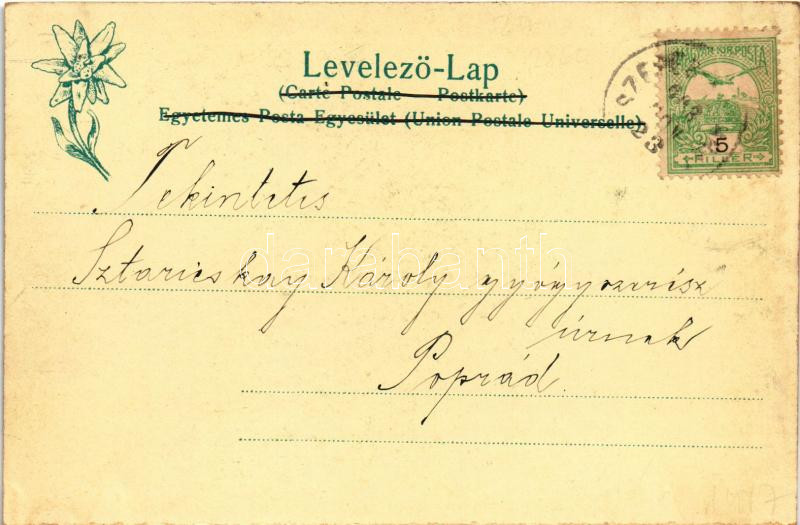 Levelező-Lap
(Carte Postale Postkarte)
Egyetemes Posta Egyesület (Union Postale Universelle)
MAGYAR KIR. POSTA
5
FILLER
23
Tekintetes
Sztaricskay Károly gyógyszerész
úrnek
Poprád.
darabanth